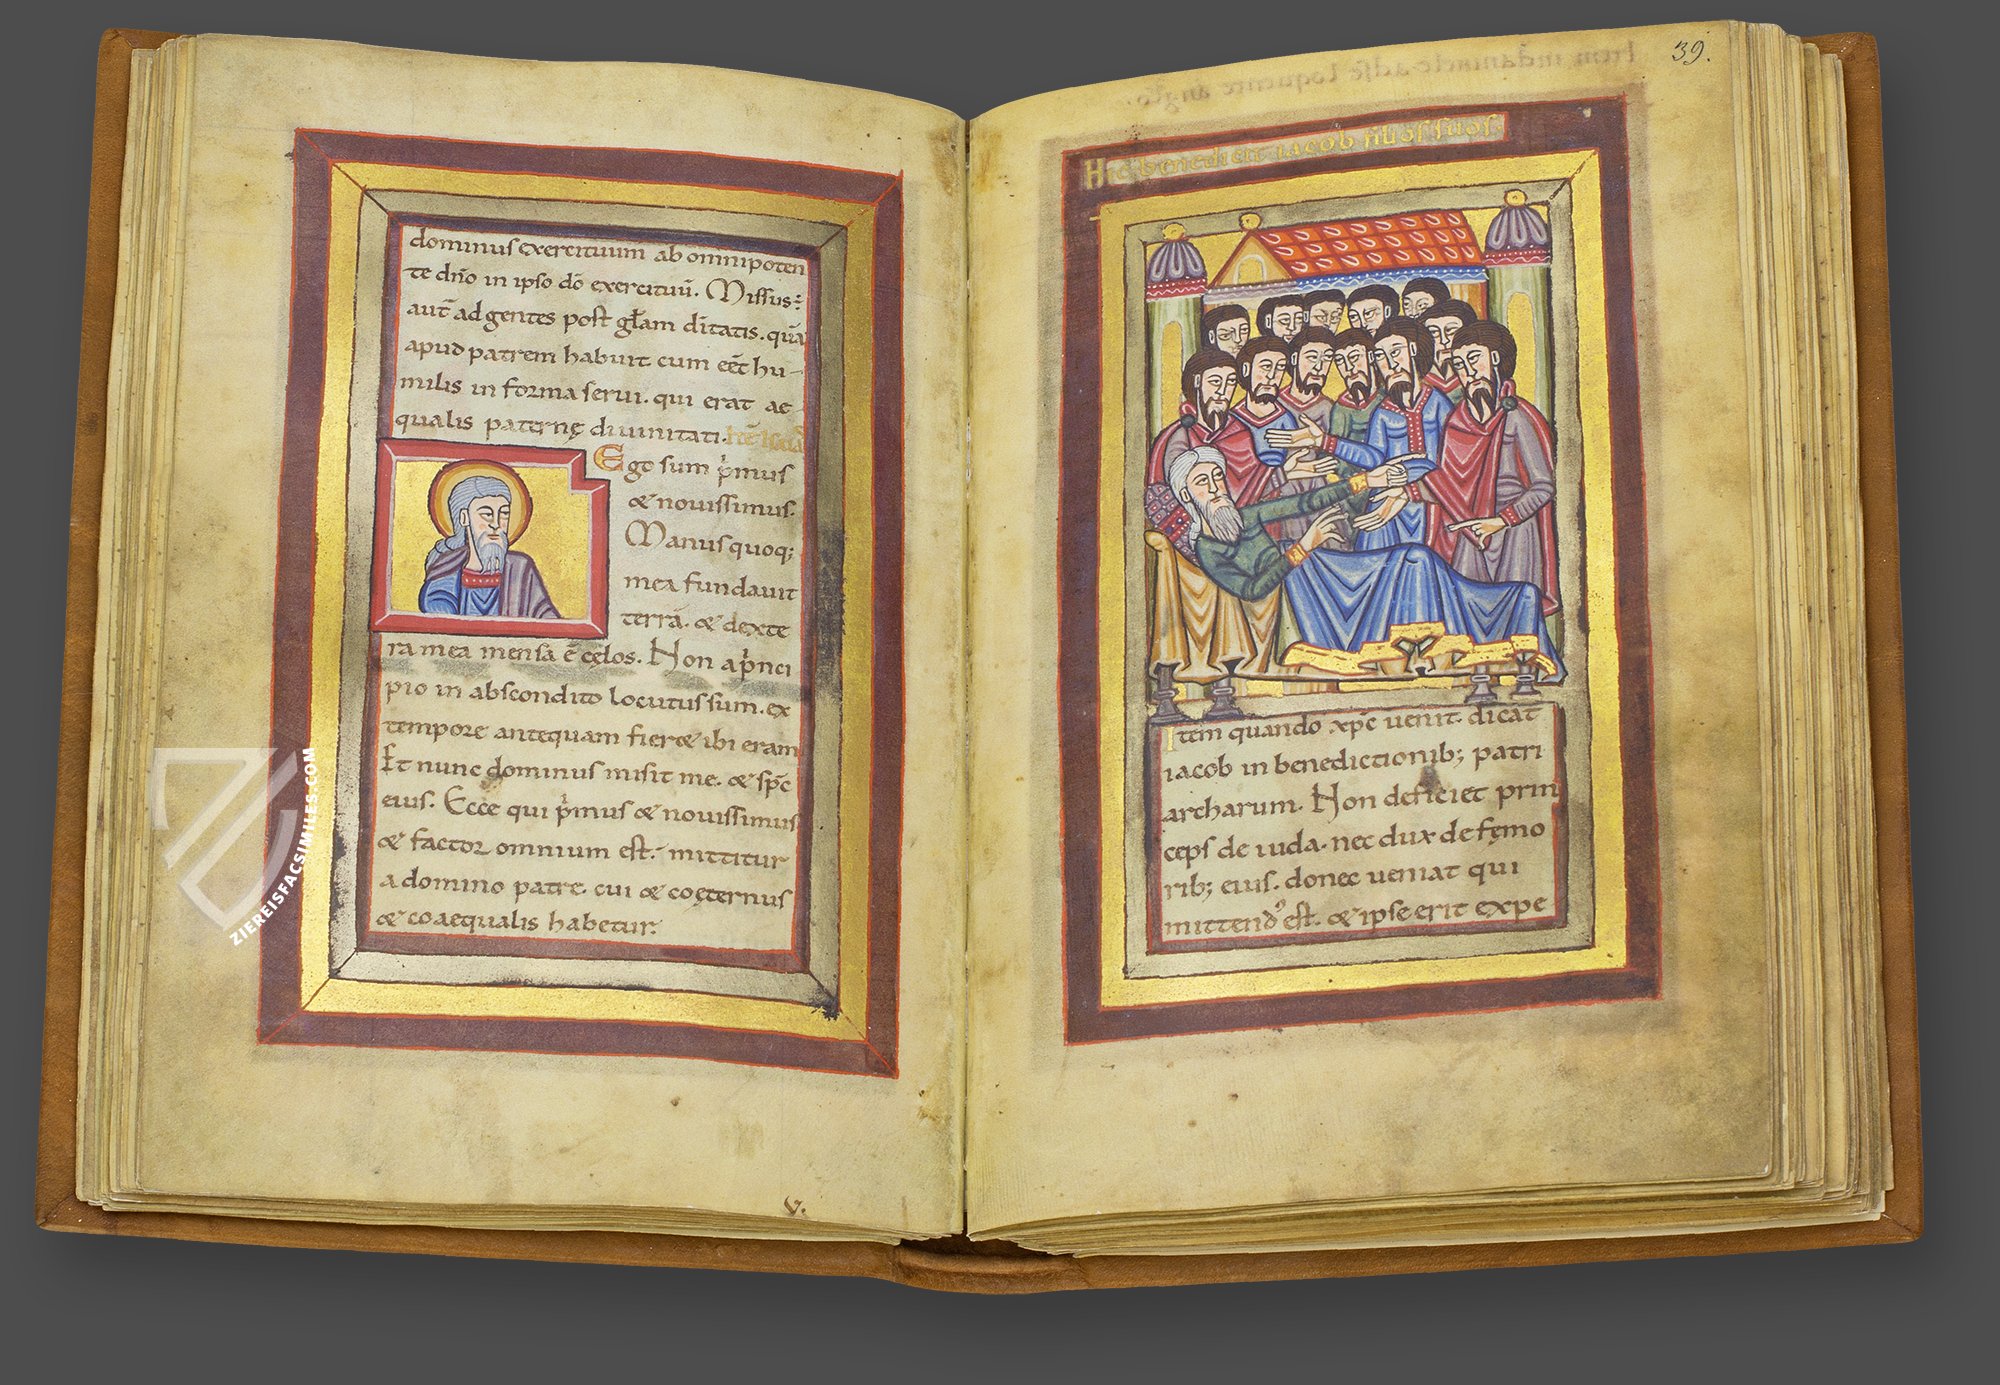 dominus exercituum ab omnipoten
te dn̄o in ipso dō exercituū. Missus
aut̄ ad gentes post gl̄am diītatis. quā
apud patrem habuit cum eēt hu-
milis in forma serui. qui erat ae-
qualis paternę diuinitati.
Ego sum pͥmus
& nouissimus.
Manus quoq;
mea fundauit
terrā. & dexte
ra mea mensa ē cęlos. Non a pͥnci
pio in abscondito locutus sum. ex
tempore antequam fier& ibi eram
Et nunc dominus misit me. & spc̄
eius. Ecce qui pͥmus & nouissimus
& factor omnium est. mittitur
a domino patre. cui & coęternus
& coaequalis habetur.
v.
39.
Hic benedicit iacob filios suos.
Item quando xpc̄ uenit dicat
iacob in benedictionib; patri
archarum. Non deficiet prin
ceps de iuda. nec dux de fęmo
rib; eius. donec ueniat qui
mittendꝰ est. & ipse erit expe
ZIEREISFACSIMILES.COM